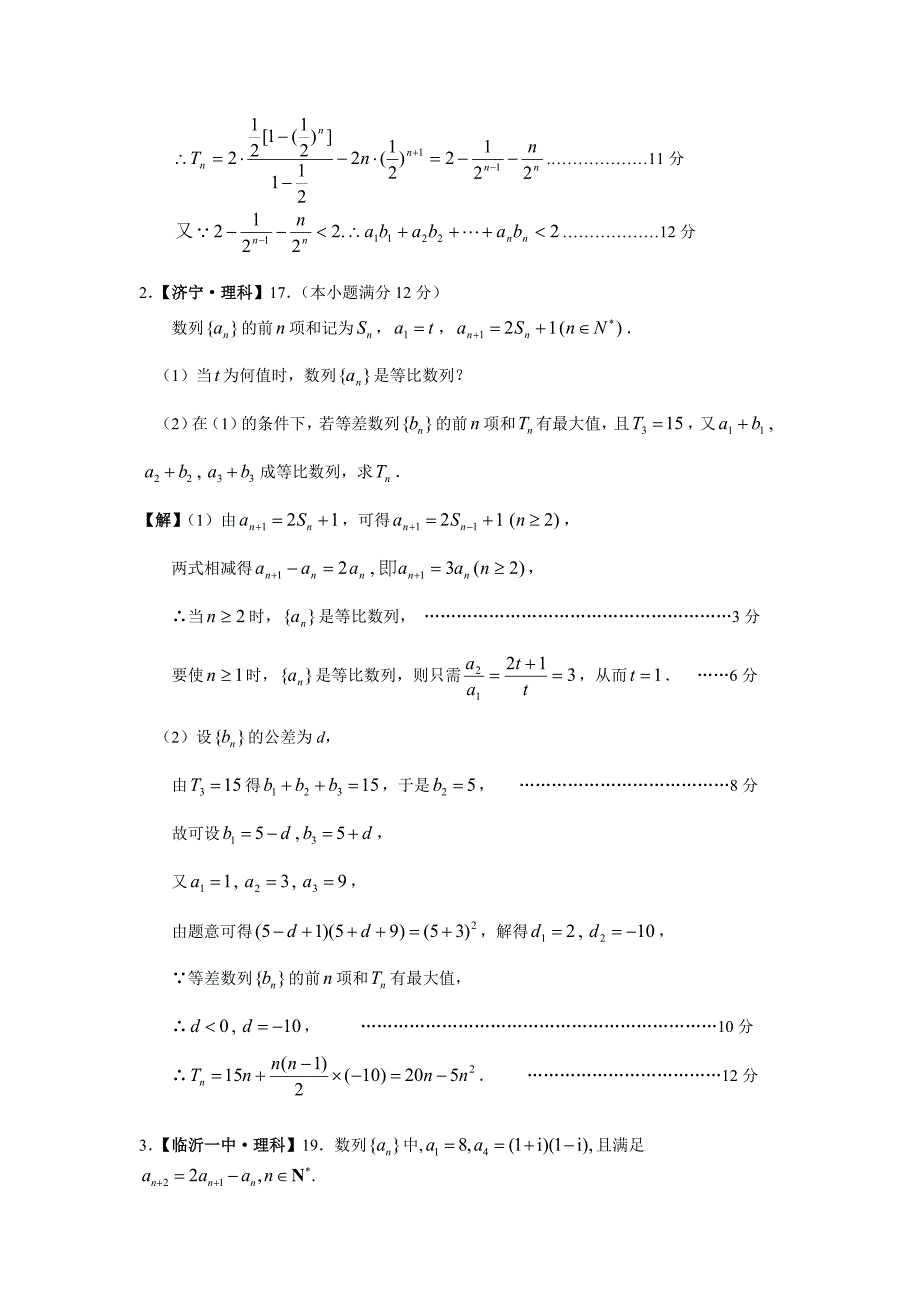 ∴T_n = 2·\frac{\frac{1}{2}[1-(\frac{1}{2})^n]}{1-\frac{1}{2}} - 2n·(\frac{1}{2})^{n+1} = 2 - \frac{1}{2^{n-1}} - \frac{n}{2^n} ………………11 分
又∵2 - \frac{1}{2^{n-1}} - \frac{n}{2^n} < 2.∴a_1b_1 + a_2b_2 + ⋯ + a_nb_n < 2 ………………12 分
2.【济宁·理科】17.（本小题满分 12 分）
数列{a_n}的前n项和记为S_n，a_1 = t，a_{n+1} = 2S_n + 1(n ∈ N^*)．
（1）当t为何值时，数列{a_n}是等比数列？
（2）在（1）的条件下，若等差数列{b_n}的前n项和T_n有最大值，且T_3 = 15，又a_1 + b_1，
a_2 + b_2, a_3 + b_3 成等比数列，求T_n．
【解】（1）由a_{n+1} = 2S_n + 1，可得a_{n+1} = 2S_{n-1} + 1 (n ≥ 2)，
两式相减得a_{n+1} - a_n = 2a_n, 即a_{n+1} = 3a_n (n ≥ 2)，
∴当n ≥ 2时，{a_n}是等比数列， …………………………………………………3 分
要使n ≥ 1时，{a_n}是等比数列，则只需\frac{a_2}{a_1} = \frac{2t+1}{t} = 3，从而t = 1． ……6 分
（2）设{b_n}的公差为 d，
由T_3 = 15得b_1 + b_2 + b_3 = 15，于是b_2 = 5， …………………………………8 分
故可设b_1 = 5 - d, b_3 = 5 + d，
又a_1 = 1, a_2 = 3, a_3 = 9，
由题意可得(5 - d + 1)(5 + d + 9) = (5 + 3)^2，解得d_1 = 2, d_2 = -10，
∵等差数列{b_n}的前n项和T_n有最大值，
∴d < 0, d = -10， …………………………………………………………10 分
∴T_n = 15n + \frac{n(n-1)}{2} × (-10) = 20n - 5n^2． ………………………………12 分
3.【临沂一中·理科】19．数列{a_n}中, a_1 = 8, a_4 = (1+i)(1-i), 且满足
a_{n+2} = 2a_{n+1} - a_n, n ∈ N^*.